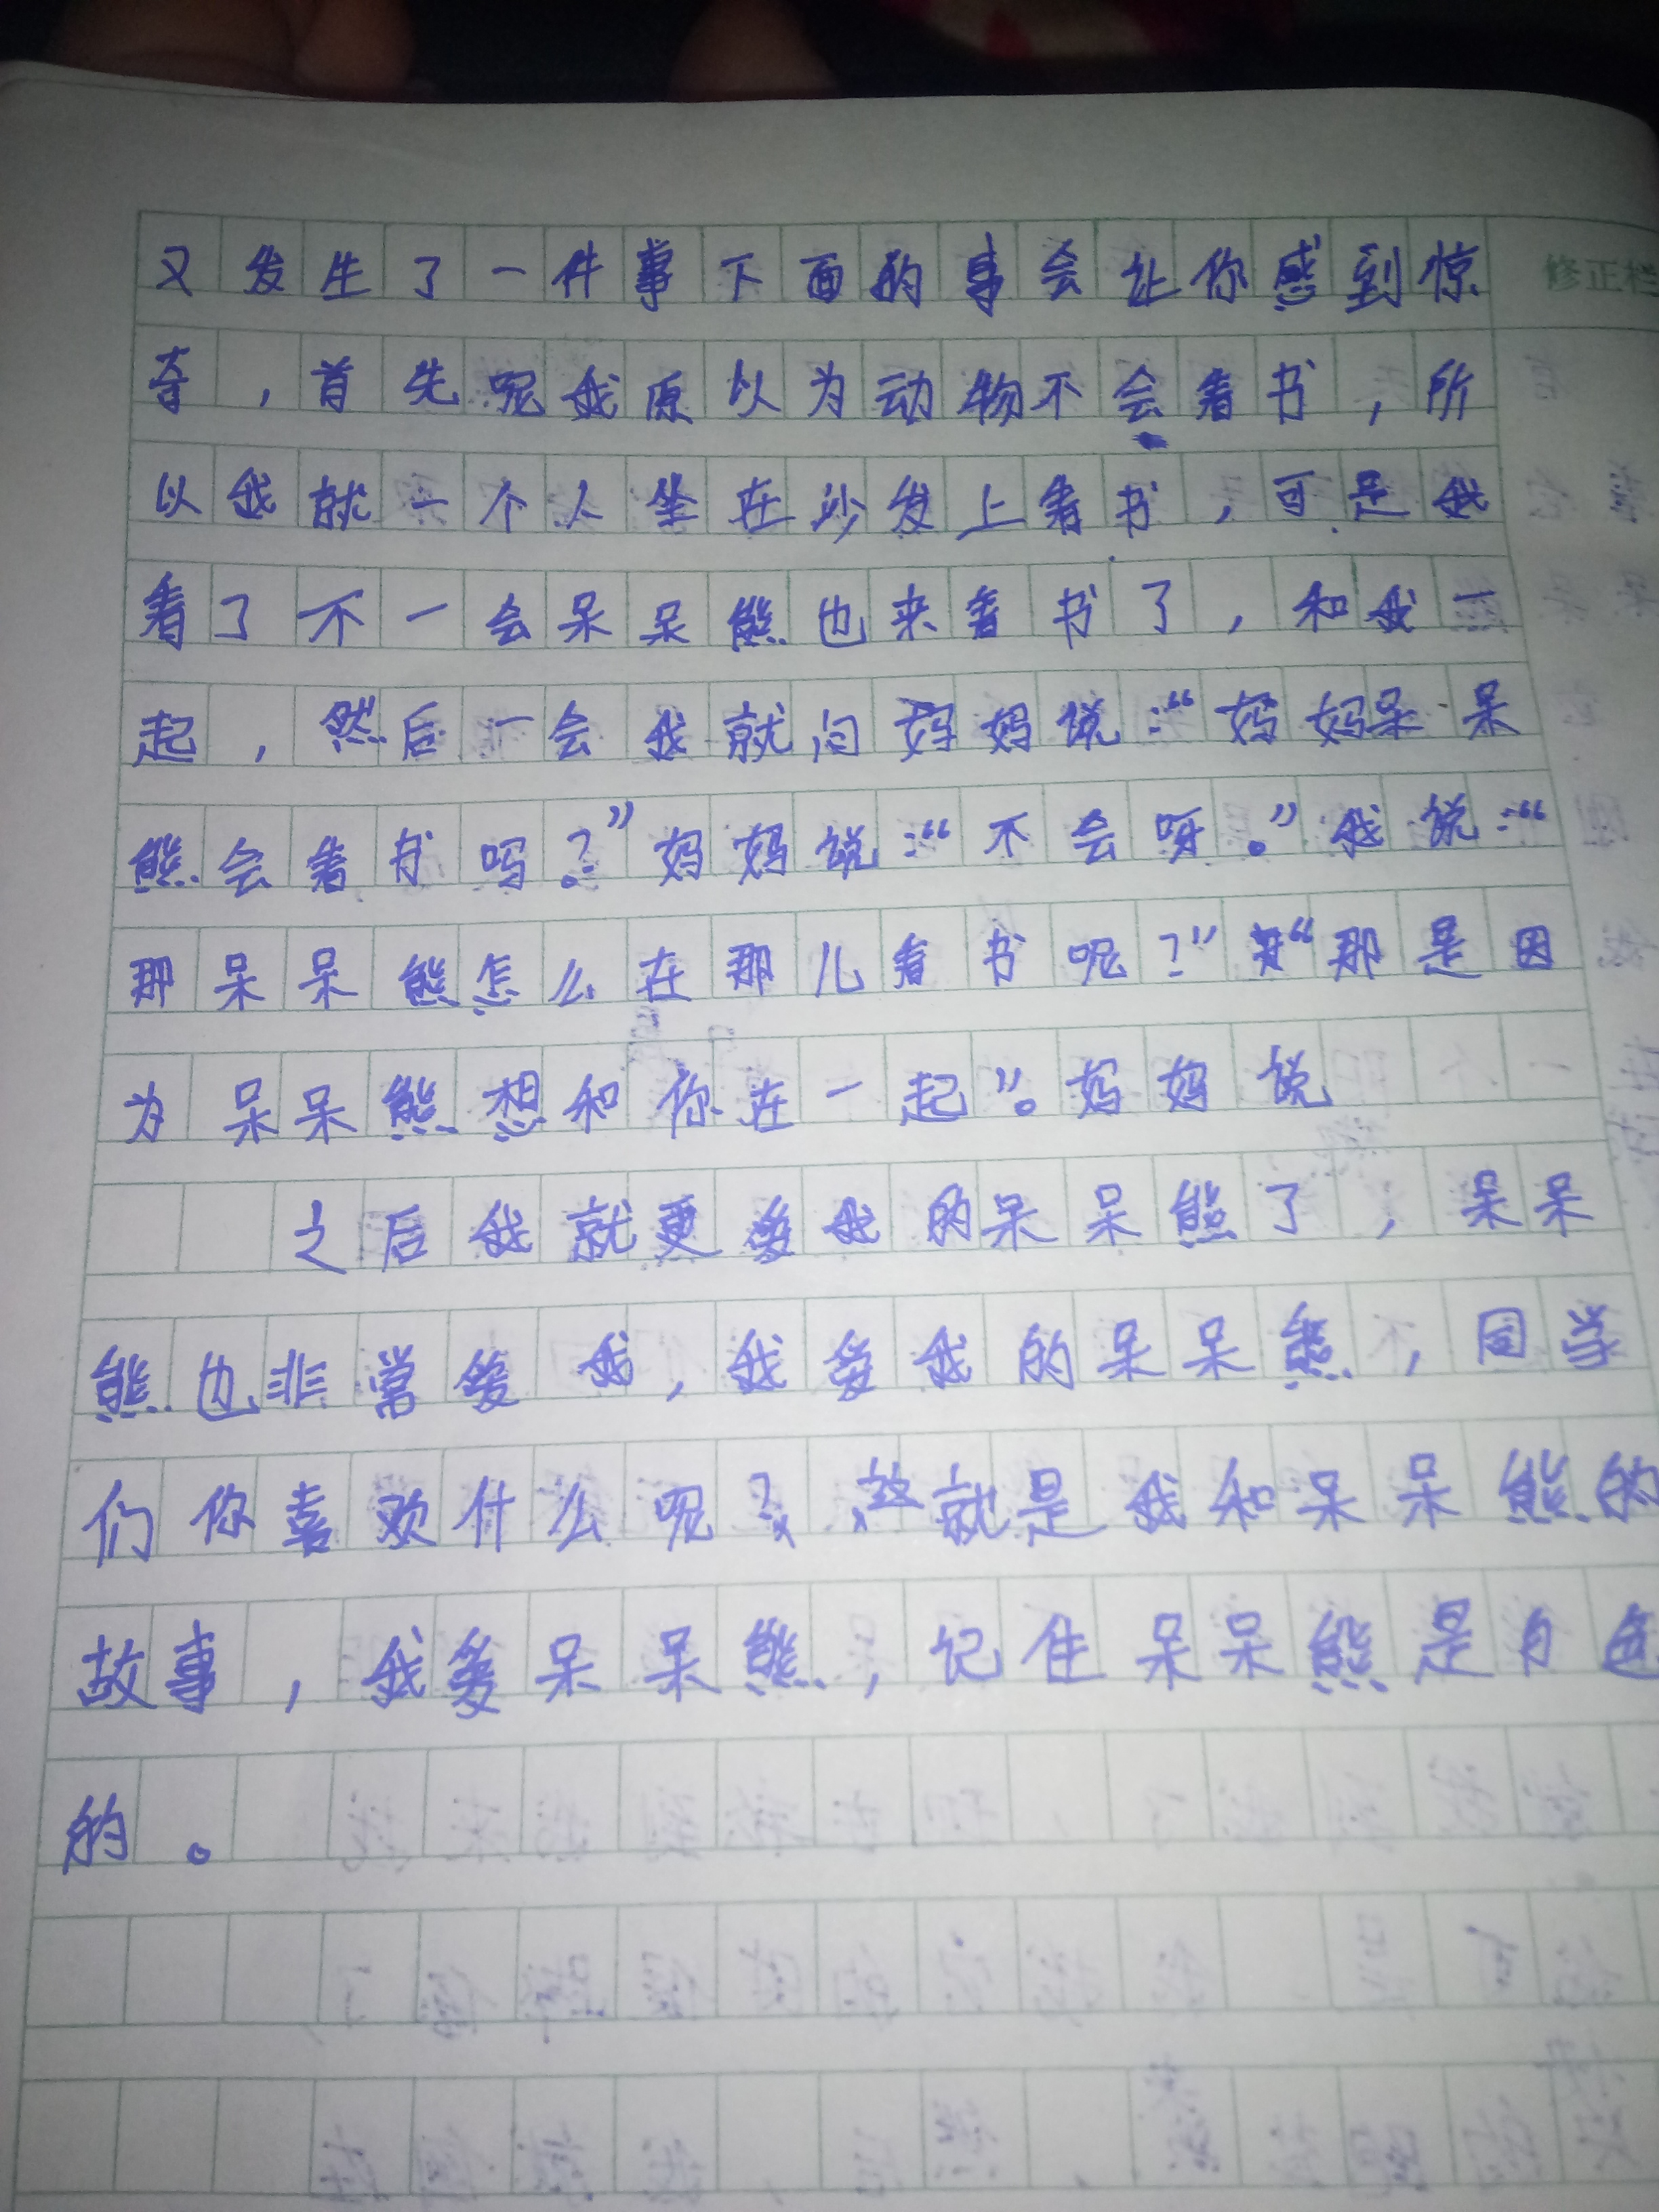 又发生了一件事下面的事会让你感到惊
修正栏
奇，首先呢我原以为动物不会看书，所
以我就一个人坐在沙发上看书，可是我
看了不一会呆呆熊也来看书了，和我一
起，然后一会我就问妈妈说：“妈妈呆呆
熊会看书吗？”妈妈说：“不会呀。”我说：“
那呆呆熊怎么在那儿看书呢？”“那是因
为呆呆熊想和你在一起”。妈妈说
之后我就更爱我的呆呆熊了，呆呆
熊也非常爱我，我爱我的呆呆熊，同学
们你喜欢什么呢？这就是我和呆呆熊的
故事，我爱呆呆熊，记住呆呆熊是白色
的。